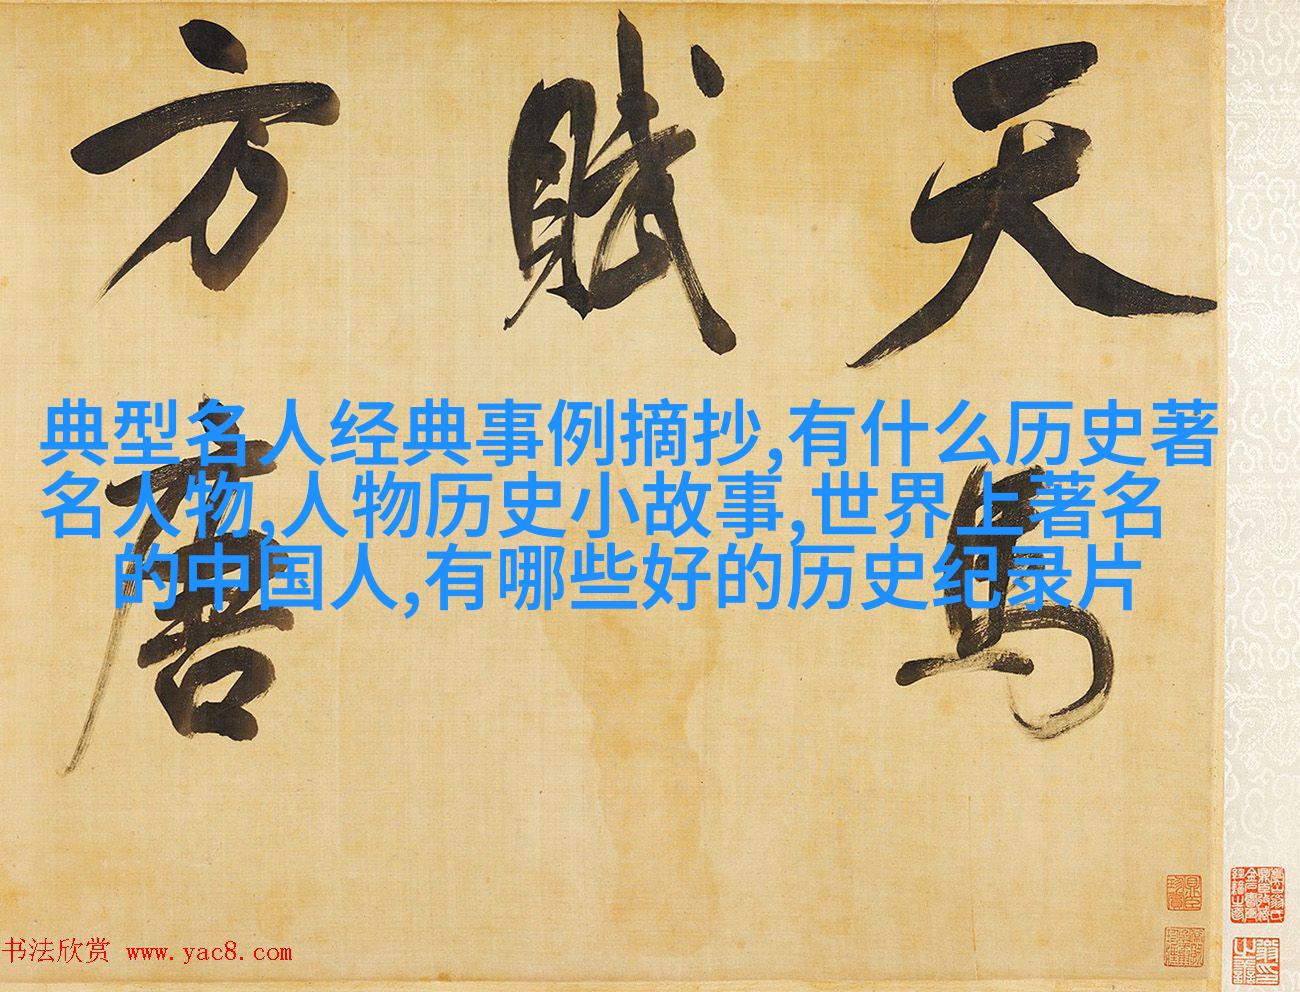 天馬
賦
方唐
典型名人经典事例摘抄,有什么历史著
名人物,人物历史小故事,世界上著名
的中国人,有哪些好的历史纪录片
书法欣赏 www.yac8.com